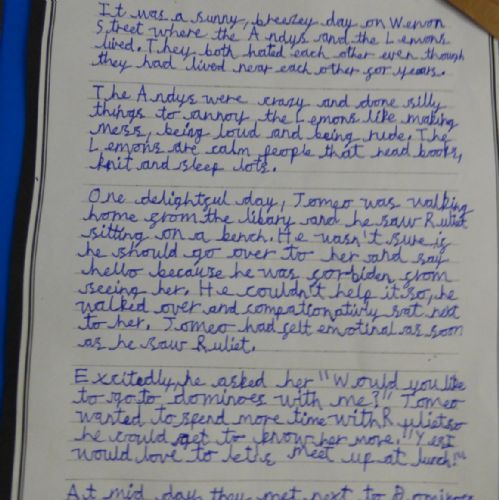 It was a sunny, breezey day on Wemon
Street where the Andys and the Lemons
lived. They both hated each other even though
they had lived near each other for years.
The Andys were crazy and done silly
things to annoy the Lemons like making
mess, being loud and being rude. The
Lemons are calm people that read books,
knit and sleep lots.
One delightful day, Tomeo was walking
home from the libary and he saw Ruliet
sitting on a bench. He wasn't sure if
he should go over to her and say
hello because he was forbiden from
seeing her. He couldn't help it so, he
walked over and compationativly sat next
to her. Tomeo had felt emotinal as soon
as he saw Ruliet.
Excitedly, he asked her "Would you like
to go to dominoes with me?" Tomeo
wanted to spend more time with Ruliet so
he could get to know her more. "Yes I
would love to let's meet up at lunch!"
At mid day they met next to Dominoes